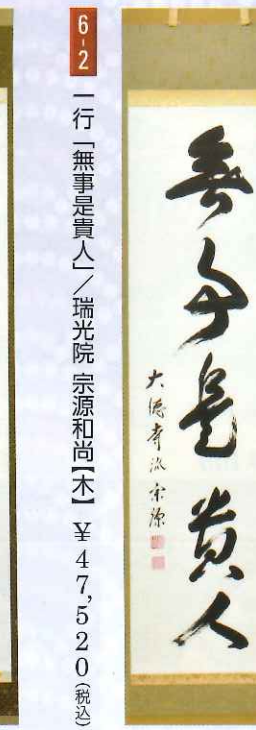 無事是貴人
大徳寺派宗源
6-2
一行「無事是貴人」／瑞光院 宗源和尚【木】 ￥47,520(税込)